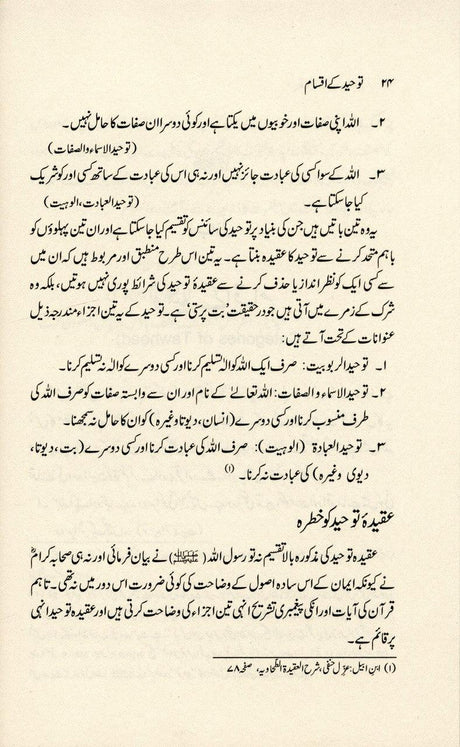 ۲۴ توحید کے اقسام
۲۔ اللہ اپنی صفات اور خوبیوں میں یکتا ہے اور کوئی دوسرا ان صفات کا حامل نہیں۔
(توحید الاسماء والصفات)
۳۔ اللہ کے سوا کسی کی عبادت جائز نہیں اور نہ ہی اس کی عبادت کے ساتھ کسی اور کو شریک
کیا جا سکتا ہے۔ (توحید العبادت، الوہیت)
یہ وہ تین باتیں ہیں جن کی بنیاد پر توحید کی سائنس کو تقسیم کیا جا سکتا ہے اور ان تین پہلوؤں کو
باہم متحد کرنے سے توحید کا عقیدہ بنتا ہے۔ یہ تین اس طرح منطبق اور مربوط ہیں کہ ان میں
سے کسی ایک کو نظر انداز یا حذف کرنے سے عقیدۂ توحید کی شرائط پوری نہیں ہوتیں، بلکہ وہ
شرک کے زمرے میں آتی ہیں جو در حقیقت ’بت پرستی‘ ہے۔ توحید کے یہ تین اجزاء مندرجہ ذیل
عنوانات کے تحت آتے ہیں:
۱۔ توحید الربوبیت: صرف ایک اللہ کو الٰہ تسلیم کرنا اور کسی دوسرے کو الٰہ نہ تسلیم کرنا۔
۲۔ توحید الاسماء و الصفات: اللہ تعالےٰ کے نام اور ان سے وابستہ صفات کو صرف اللہ کی
طرف منسوب کرنا اور کسی دوسرے (انسان، دیوتا وغیرہ) کو ان کا حامل نہ سمجھنا۔
۳۔ توحید العبادۃ (الوہیت): صرف اللہ کی عبادت کرنا اور کسی دوسرے (بت، دیوتا،
دیوی وغیرہ) کی عبادت نہ کرنا۔ (۱)
عقیدۂ توحید کو خطرہ
عقیدۂ توحید کی مذکورہ بالا تقسیم نہ تو رسول اللہ (ﷺ) نے بیان فرمائی اور نہ ہی صحابہ کرامؓ
نے کیونکہ ایمان کے اس سادہ اصول کے وضاحت کی کوئی ضرورت اس دور میں نہ تھی۔ تاہم
قرآن کی آیات اور انکی پیغمبری تشریح انہی تین اجزاء کی وضاحت کرتی ہیں اور عقیدہ توحید انہی
پر قائم ہے۔
(۱) ابن ابیل: عزل حنفی، شرح العقیدۃ الطحاویہ، صفحہ ۷۸